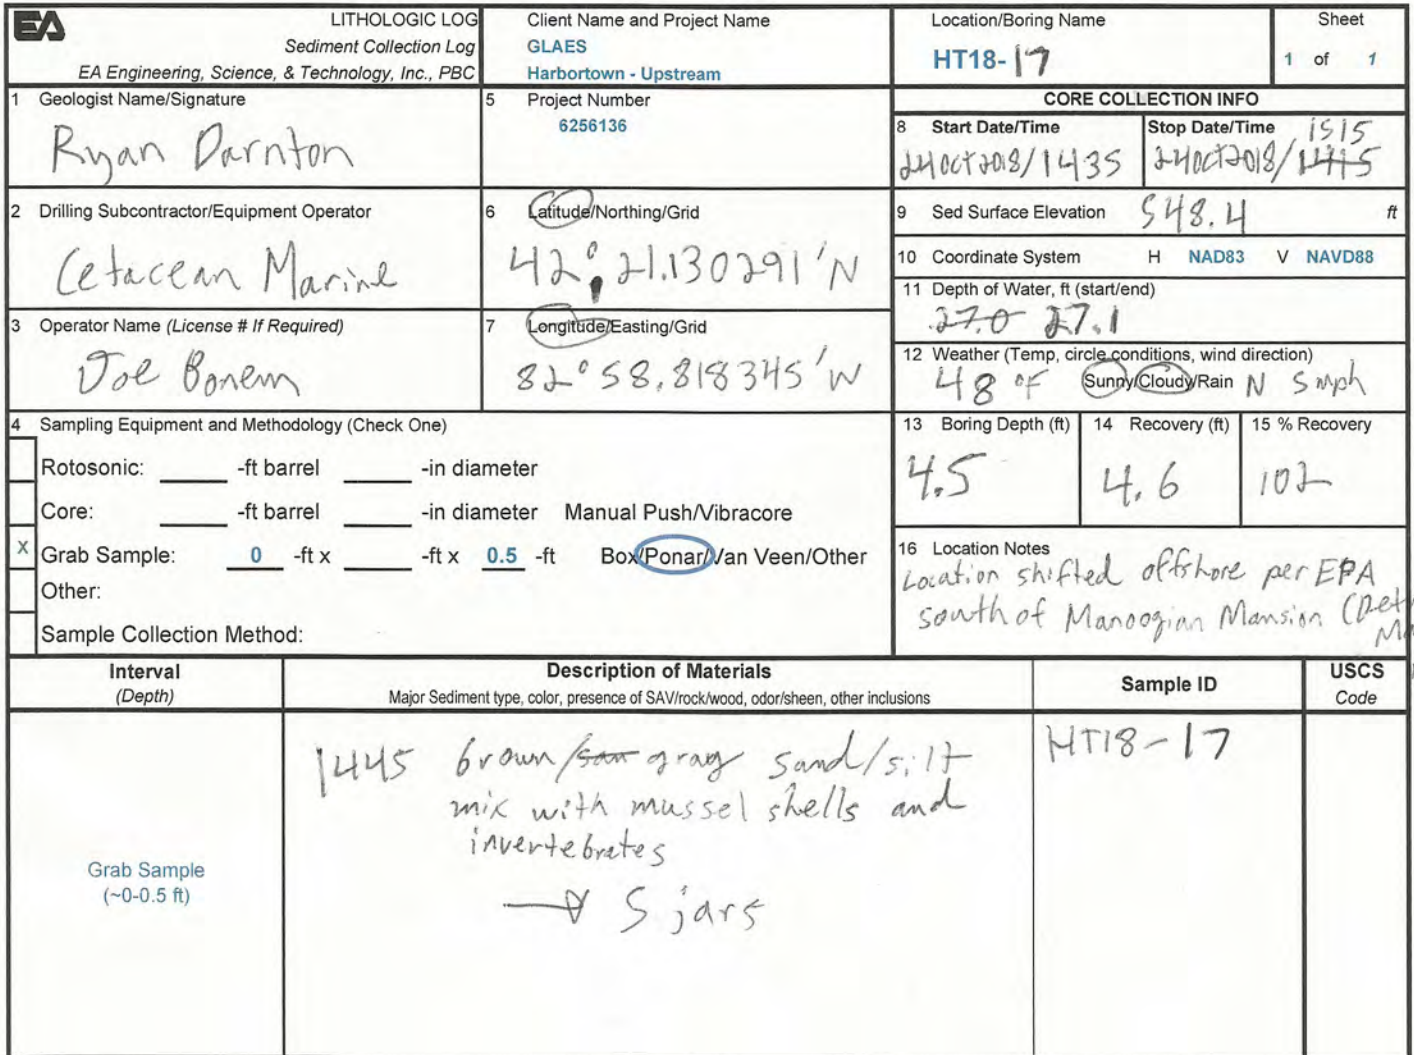 EA
LITHOLOGIC LOG
Sediment Collection Log
EA Engineering, Science, & Technology, Inc., PBC
Client Name and Project Name
GLAES
Harbortown - Upstream
Location/Boring Name
HT18-17
Sheet
1 of 1
1 Geologist Name/Signature
Ryan Darnton
5 Project Number
6256136
CORE COLLECTION INFO
8 Start Date/Time
24Oct2018/1435
Stop Date/Time
1515
24Oct2018/1415
2 Drilling Subcontractor/Equipment Operator
Cetacean Marine
6 Latitude/Northing/Grid
42° 21.130291'N
9 Sed Surface Elevation 548.4 ft
10 Coordinate System H NAD83 V NAVD88
11 Depth of Water, ft (start/end)
27.0 27.1
3 Operator Name (License # If Required)
Joe Bonem
7 Longitude/Easting/Grid
82°58.818345'W
12 Weather (Temp, circle conditions, wind direction)
48 °F Sunny/Cloudy/Rain N 5 mph
4 Sampling Equipment and Methodology (Check One)
Rotosonic: ____ -ft barrel ____ -in diameter
Core: ____ -ft barrel ____ -in diameter Manual Push/Vibracore
X Grab Sample: 0 -ft x ____ -ft x 0.5 -ft Box/Ponar/Van Veen/Other
Other:
Sample Collection Method:
13 Boring Depth (ft)
4.5
14 Recovery (ft)
4.6
15 % Recovery
102
16 Location Notes
Location shifted offshore per EPA
south of Manoogian Mansion (Det
Ma
Interval
(Depth)
Description of Materials
Major Sediment type, color, presence of SAV/rock/wood, odor/sheen, other inclusions
Sample ID
USCS
Code
Grab Sample
(~0-0.5 ft)
1445 brown/san gray sand/silt
mix with mussel shells and
invertebrates
→ 5 jars
HT18-17